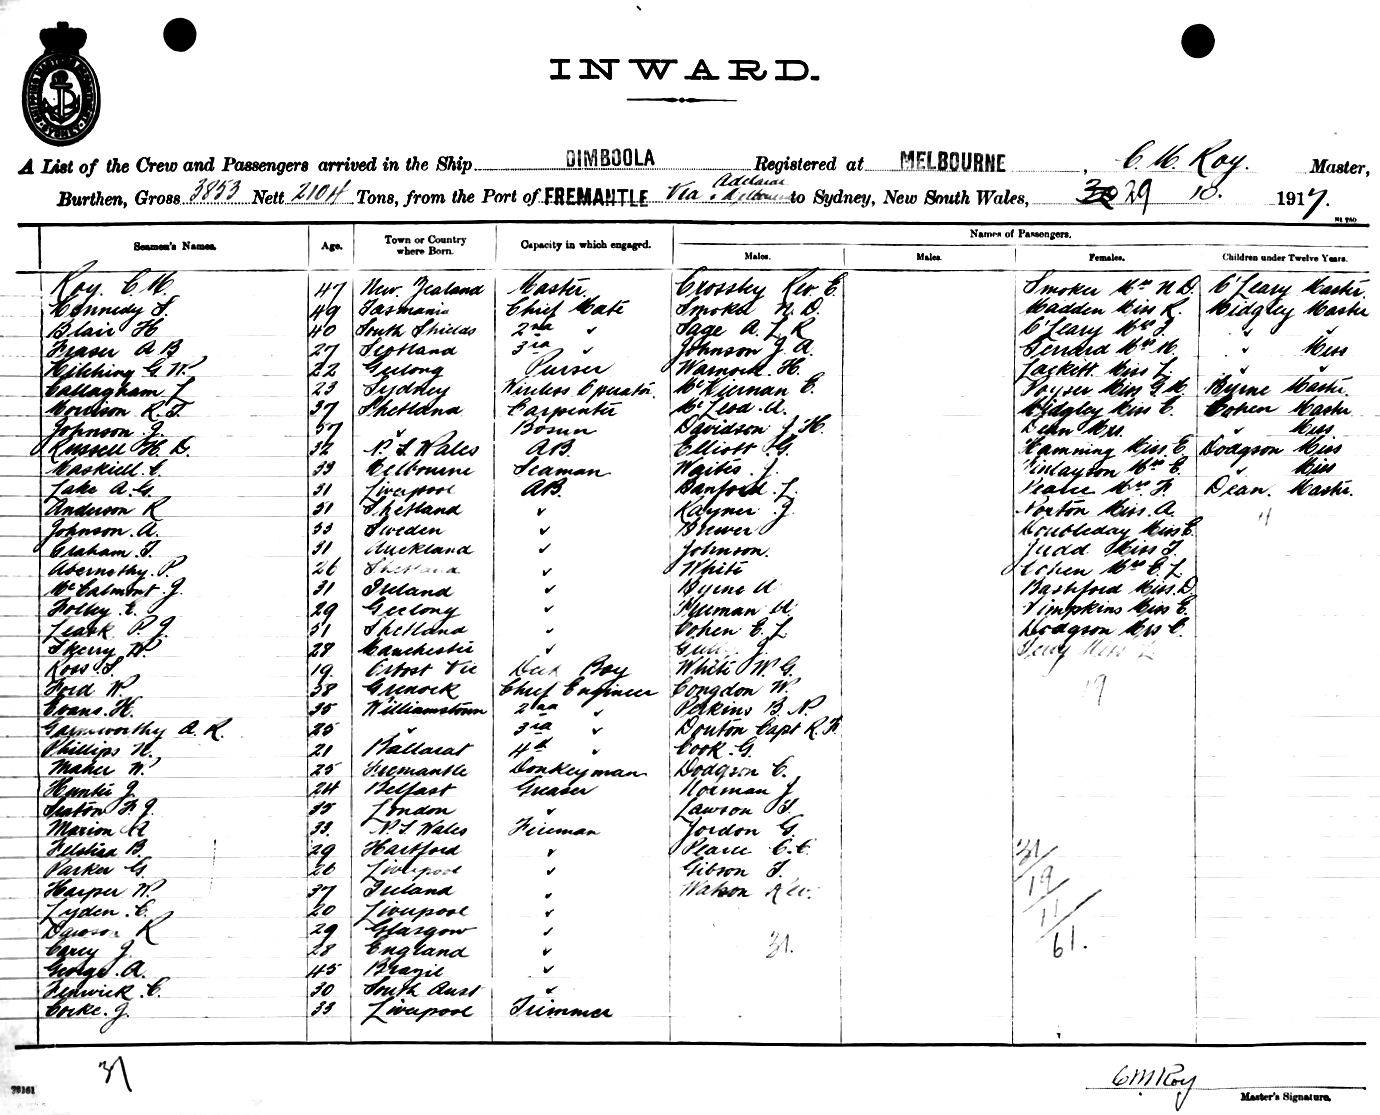 INWARD.
A List of the Crew and Passengers arrived in the Ship DIMBOOLA Registered at MELBOURNE, C. M. Roy. Master,
Burthen, Gross 3853 Nett 2104 Tons, from the Port of FREMANTLE Via Adelaide & Melbourne to Sydney, New South Wales, 29 10. 1917.
Seamen's Names. Age. Town or Country where Born. Capacity in which engaged. Names of Passengers.
Males. Males. Females. Children under Twelve Years.
Roy. C M 47 New Zealand Master. Crossley Rev. E. Smoker Mrs N D. O'Leary Master.
Kennedy S. 49 Tasmania Chief Mate Smoker N. D. Madden Miss R. Midgley Master
Blair H 40 South Shields 2nd " Sage A. L. R O'Leary Mrs " "
Fraser A B 27 Scotland 3rd " Johnson J. A. Gerrard Mrs M. " Miss
Hitching G. W. 22 Geelong Purser Warnock H. Miss " "
Callagham 23 Sydney Wireless Operator. McKiernan E. Miss G. M. Byrne Master.
Morrison R. 37 Shetland Carpenter McLeod. A. Midgley Miss E. Cohen Master
Johnson. J. 57 " Bosun Davidson H. Dean Mrs. " Miss
Russell H. D. 32 N. S. Wales A.B. Elliott G. Miss E. Dodgson Miss
Maskiell. C. 33 Melbourne Seaman Waites. J. Finlayson Mrs E. " Miss
Lake A. G. 31 Liverpool A.B. Banford. L Pearce Mrs F. Dean. Master.
Anderson R 31 Shetland " Rayner J Norton Miss. A. 11
Johnson. A. 33 Sweden " Brewer Doubleday Miss E.
Graham. 31 Auckland " Johnson. Judd Miss
Abernethy. P. 26 Shetland " White Cohen Mrs E. L
McCalmont. J. 31 Ireland " Byrne Bashford Miss. D.
Folley. E. 29 Geelong " Timpkins Miss E.
Leask P. J. 31 Shetland " Cohen E. L Dodgson Mrs C.
Skerry W. 28 Manchester "
Ross 19 Orbost Vic Deck Boy White W. G.
Ford W. 38 Grenock Chief Engineer Congdon W. 19
Evans. H. 35 Williamstown 2nd " Perkins B. N.
Garmworthy A. R. 25 " 3rd " Douton Capt R. F.
Phillips N. 21 Ballarat 4th " Cook. G.
Maher W. 25 Fremantle Donkeyman Dodgson C.
Hunter J 24 Belfast Greaser Norman J
Seaton F. J. 35 London " Lawson
Marion A 33 N. S Wales Fireman Jordon G.
Felstead B. 29 Hartford " Pearce C. C. 31
Parker G. 26 Liverpool " Gibson 19
Harper W. 37 Ireland " Watson Rev. 11
Lyden. C. 20 Liverpool "
Dawson R 29 Glasgow "
Carey J. 28 England " 31. 61.
George. A. 45 Brazil "
Fenwick. C. 30 South Aust "
Corke. J. 33 Liverpool Trimmer
37
C M Roy
Master's Signature.